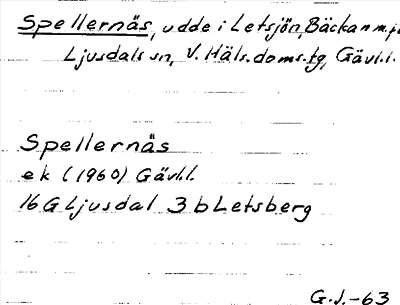 Spellernäs, udde i Letsjön, Bäckan m.fl.
Ljusdals sn, V. Häls. doms.tg, Gävl.l.
Spellernäs
ek (1960) Gävl.l.
16 G Ljusdal 3 b Letsberg
G.J.-63